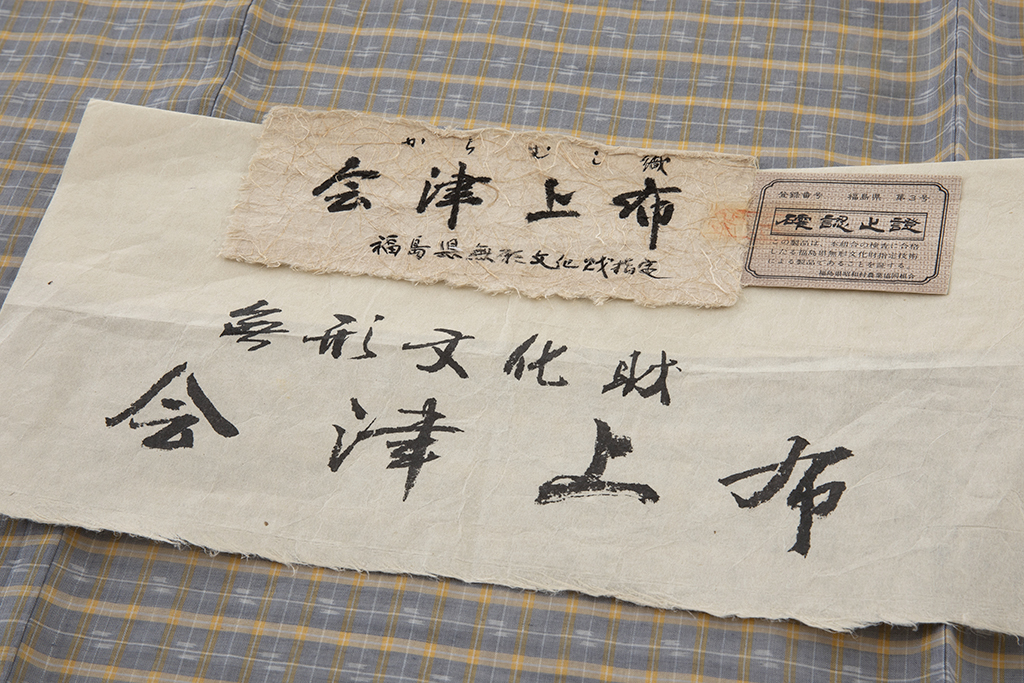 からむし織
会津上布
福島県無形文化財指定
登録番号 福島県 第3号
確認之證
この製品は、本組合の検査に合格
したる福島県無形文化財指定技術
による製品であることを証する。
福島県昭和村農業協同組合
無形文化財
会津上布